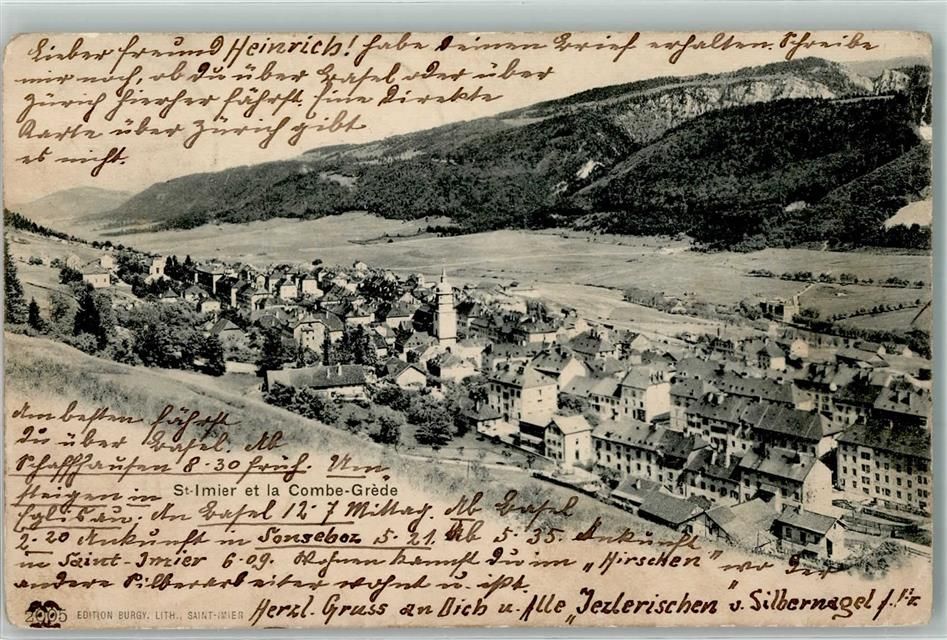 Lieber Freund Heinrich! habe Deinen Brief erhalten. Schreibe
mir noch, ob Du über Basel oder über
Zürich hierher fährst. Eine direkte
Karte über Zürich gibt
es nicht.
Am besten fährst
Du über Basel. Ab
Schaffhausen 8.30 früh. Um-
steigen in
Eglisau. An Basel 12.7 Mittag. Ab Basel
2.20 Ankunft in Sonceboz 5.21. Ab 5.35. Ankunft
in Saint-Imier 6.09. Wohnen kannst Du im "Hirschen" wo der
andere Silberarbeiter wohnt u. ißt.
Herzl. Gruss an Dich u. Alle "Jezlerischen" v. Silbernagel
St-Imier et la Combe-Grède
2005 EDITION BURGY, LITH., SAINT-IMIER